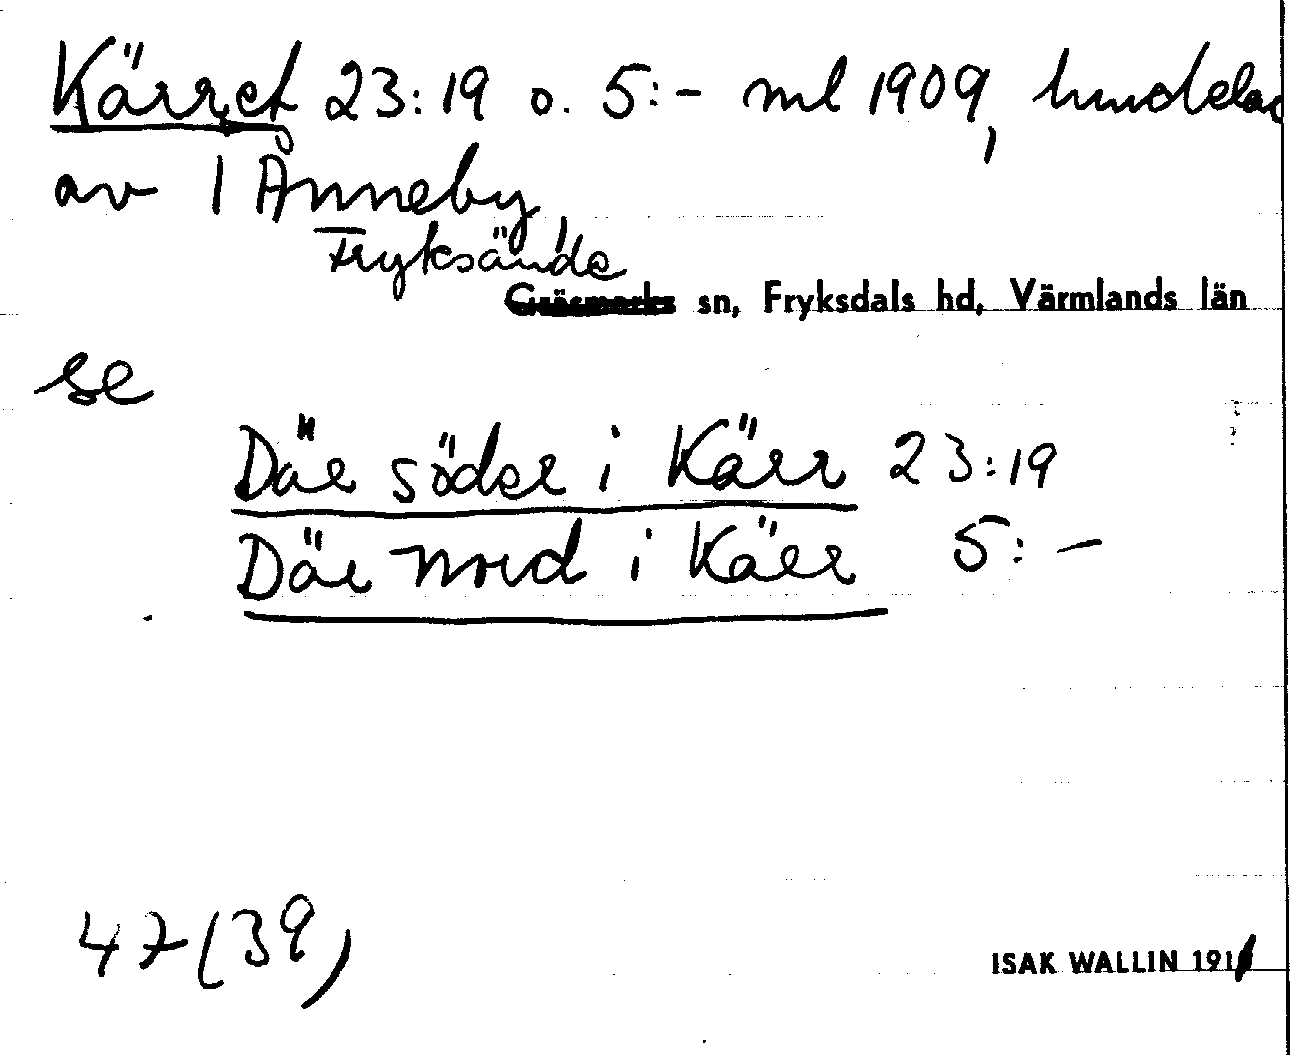 Kärret 23:19 o. 5:- ml 1909, huvdelar
av 1 Ånneby,
Fryksände
sn, Fryksdals hd, Värmlands län
se
Där söder i Kärr 23:19
Där nord i Kärr 5:-
47 (39)
ISAK WALLIN 191